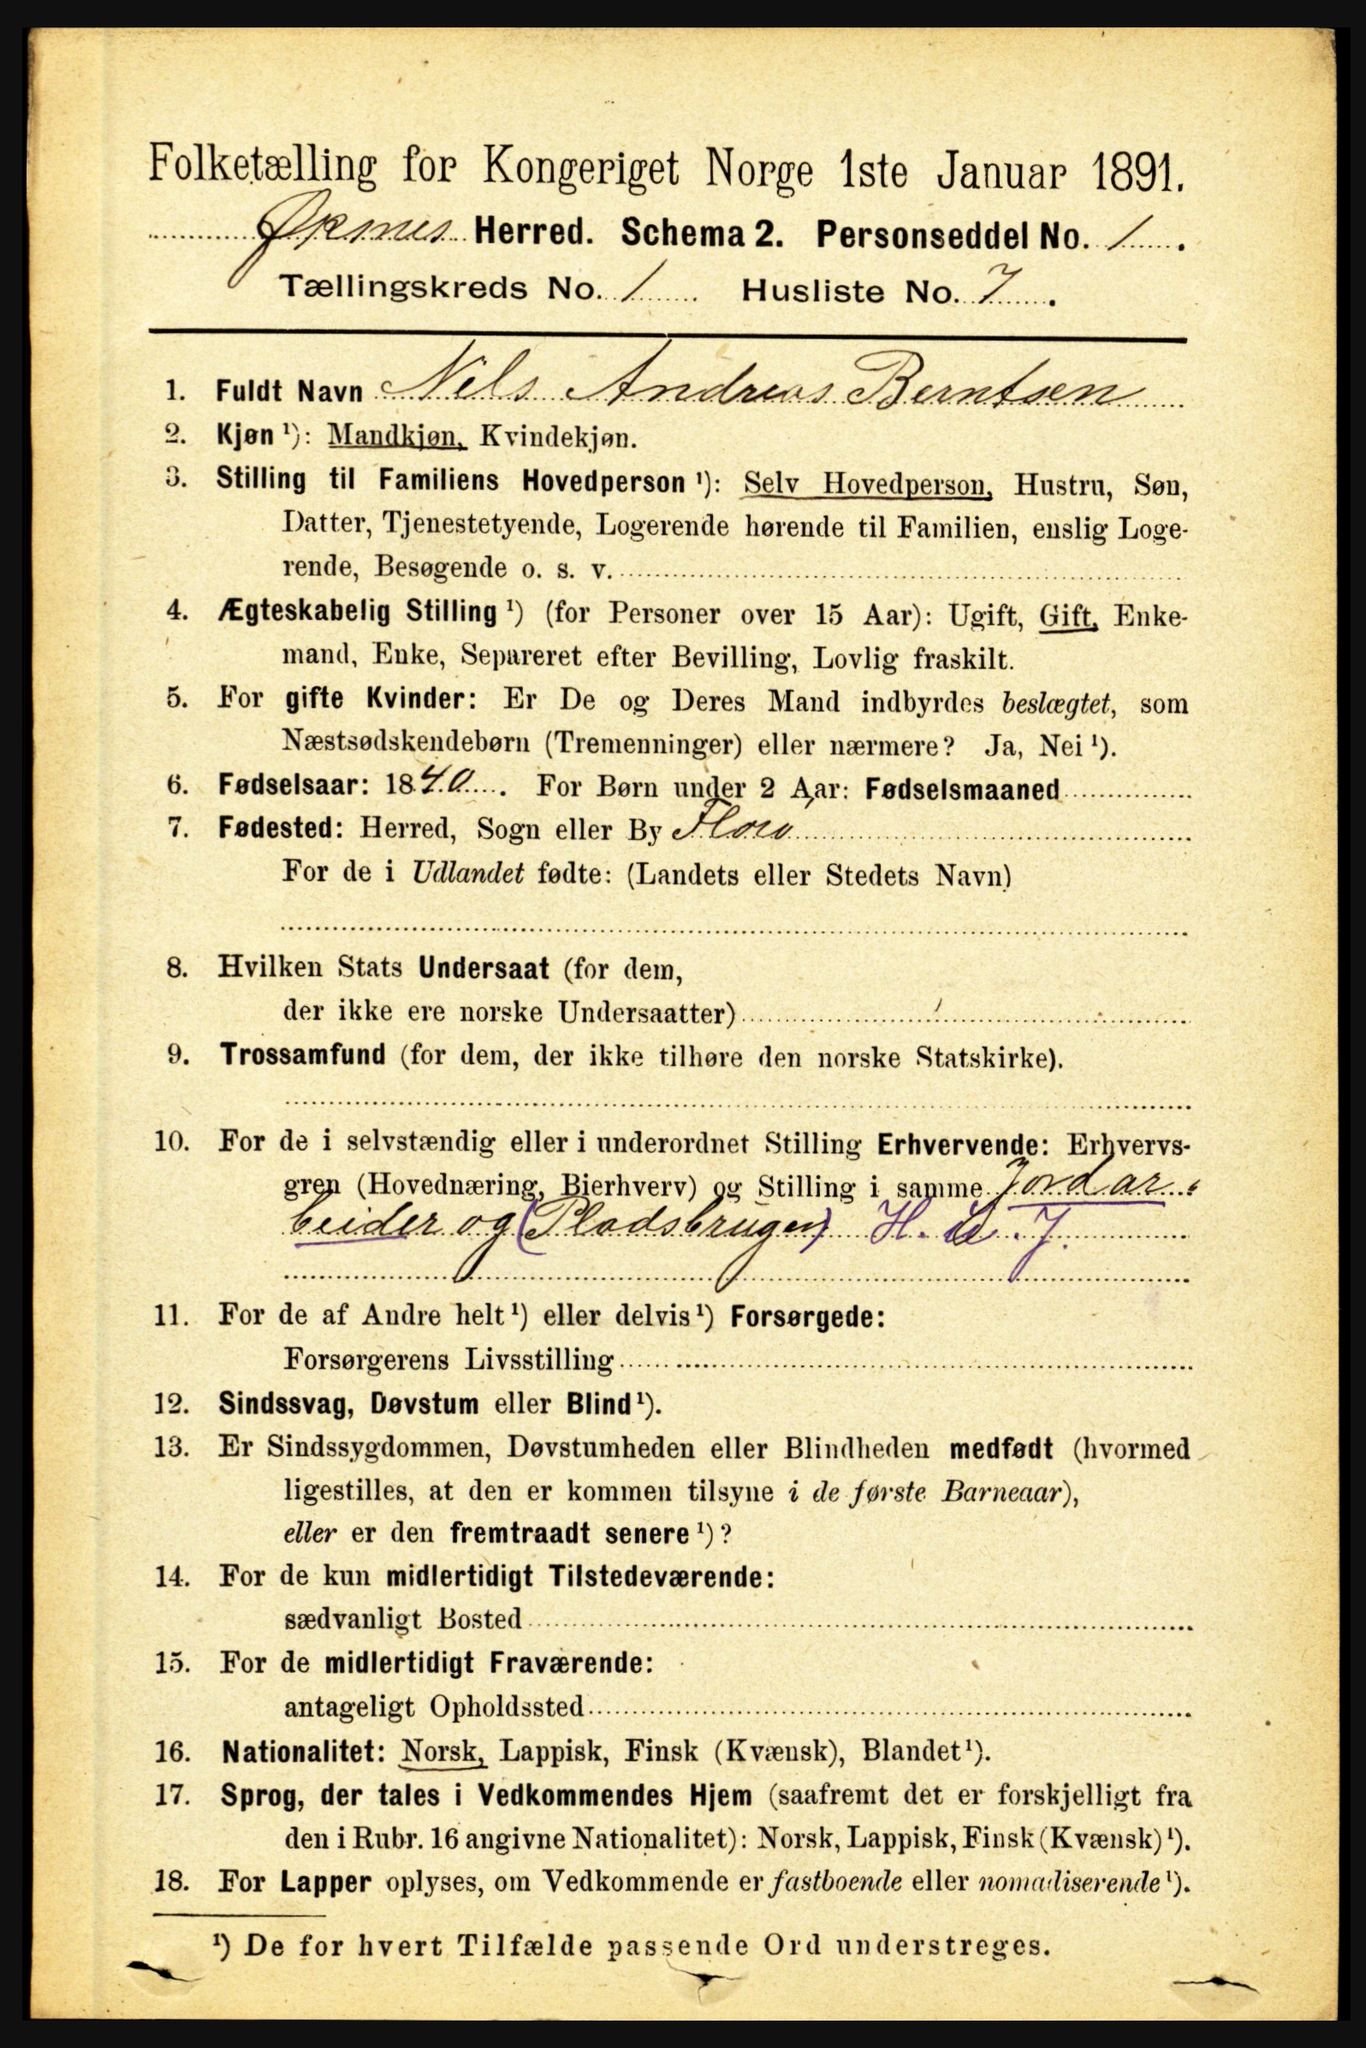 Folketælling for Kongeriget Norge 1ste Januar 1891.
Øksnes Herred. Schema 2. Personseddel No. 1.
Tællingskreds No. 1 Husliste No. 7.
1. Fuldt Navn Nels Andreas Berntsen
2. Kjøn ¹): Mandkjøn, Kvindekjøn.
3. Stilling til Familiens Hovedperson ¹): Selv Hovedperson, Hustru, Søn,
Datter, Tjenestetyende, Logerende hørende til Familien, enslig Loge-
rende, Besøgende o. s. v.
4. Ægteskabelig Stilling ¹) (for Personer over 15 Aar): Ugift, Gift, Enke-
mand, Enke, Separeret efter Bevilling, Lovlig fraskilt.
5. For gifte Kvinder: Er De og Deres Mand indbyrdes beslægtet, som
Næstsødskendebørn (Tremenninger) eller nærmere? Ja, Nei ¹).
6. Fødselsaar: 1840. For Børn under 2 Aar: Fødselsmaaned
7. Fødested: Herred, Sogn eller By
For de i Udlandet fødte: (Landets eller Stedets Navn)
8. Hvilken Stats Undersaat (for dem,
der ikke ere norske Undersaatter)
9. Trossamfund (for dem, der ikke tilhøre den norske Statskirke).
10. For de i selvstændig eller i underordnet Stilling Erhvervende: Erhvervs-
gren (Hovednæring, Bierhverv) og Stilling i samme Jordar-
beider og (Pladsbruger)
11. For de af Andre helt ¹) eller delvis ¹) Forsørgede:
Forsørgerens Livsstilling
12. Sindssvag, Døvstum eller Blind ¹).
13. Er Sindssygdommen, Døvstumheden eller Blindheden medfødt (hvormed
ligestilles, at den er kommen tilsyne i de første Barneaar),
eller er den fremtraadt senere ¹)?
14. For de kun midlertidigt Tilstedeværende:
sædvanligt Bosted
15. For de midlertidigt Fraværende:
antageligt Opholdssted
16. Nationalitet: Norsk, Lappisk, Finsk (Kvænsk), Blandet ¹).
17. Sprog, der tales i Vedkommendes Hjem (saafremt det er forskjelligt fra
den i Rubr. 16 angivne Nationalitet): Norsk, Lappisk, Finsk (Kvænsk) ¹).
18. For Lapper oplyses, om Vedkommende er fastboende eller nomadiserende ¹).
¹) De for hvert Tilfælde passende Ord understreges.